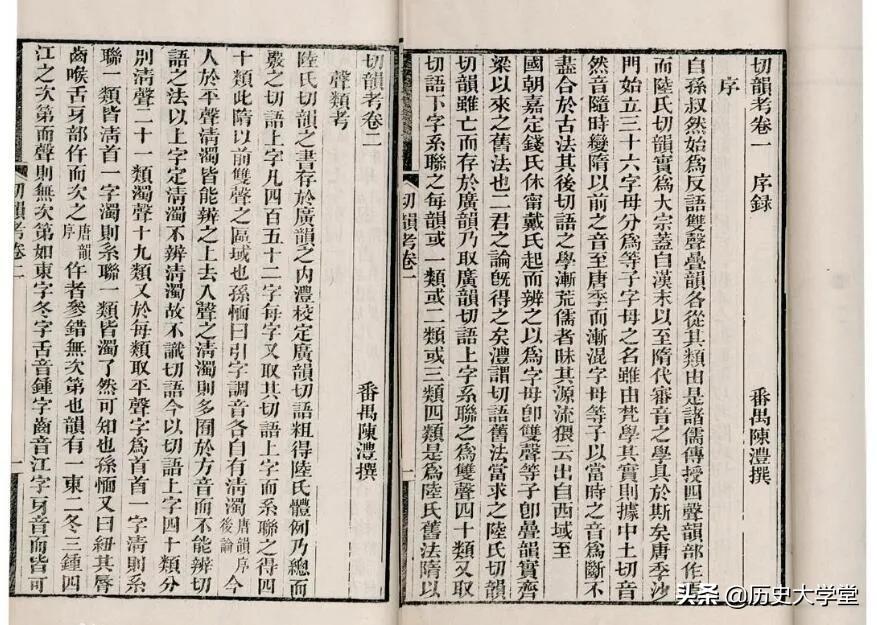 切韻考卷一 序録
番禺陳澧撰
序
自孫叔然始爲反語雙聲疊韻各從其類由是諸儒傳授四聲韻部作焉
而陸氏切韻實爲大宗蓋自漢末以至隋代審音之學具於斯矣唐季沙
門始立三十六字母分爲等子字母之名雖由梵學其實則據中土切音
然音隨時變隋以前之音至唐季而漸混字母等子以當時之音爲斷不
盡合於古法其後切語之學漸荒儒者昧其源流猥云出自西域至
國朝嘉定錢氏休甯戴氏起而辨之以爲字母卽雙聲等子卽疊韻實齊
梁以來之舊法也二君之論旣得之矣澧謂切語舊法當求之陸氏切韻
切韻雖亡而存於廣韻乃取廣韻切語上字系聯之爲雙聲四十類又取
切語下字系聯之每韻或一類或二類或三類四類是爲陸氏舊法隋以
切韻考卷一
切韻考卷二
番禺陳澧撰
聲類考
陸氏切韻之書存於廣韻之内澧校定廣韻切語粗得陸氏體例乃總而
覈之切語上字凡四百五十二字每字又取其切語上字而系聯之得四
十類此隋以前雙聲之區域也孫愐曰引字調音各自有清濁唐韻序後論今
人於平聲清濁皆能辨之上去入聲之清濁則多囿於方音而不能辨切
語之法以上字定清濁不辨清濁故不識切語今以切語上字四十類分
別清聲二十一類濁聲十九類又於每類取平聲字爲首首一字清則系
聯一類皆清首一字濁則系聯一類皆濁了然可知也孫愐又曰紐其脣
齒喉舌牙部仵而次之唐韻序仵者參錯無次第也韻有一東二冬三鍾四
江之次第而聲則無次第如東字冬字舌音鍾字齒音江字牙音而皆可
切韻考卷二
头条 @历史大学堂